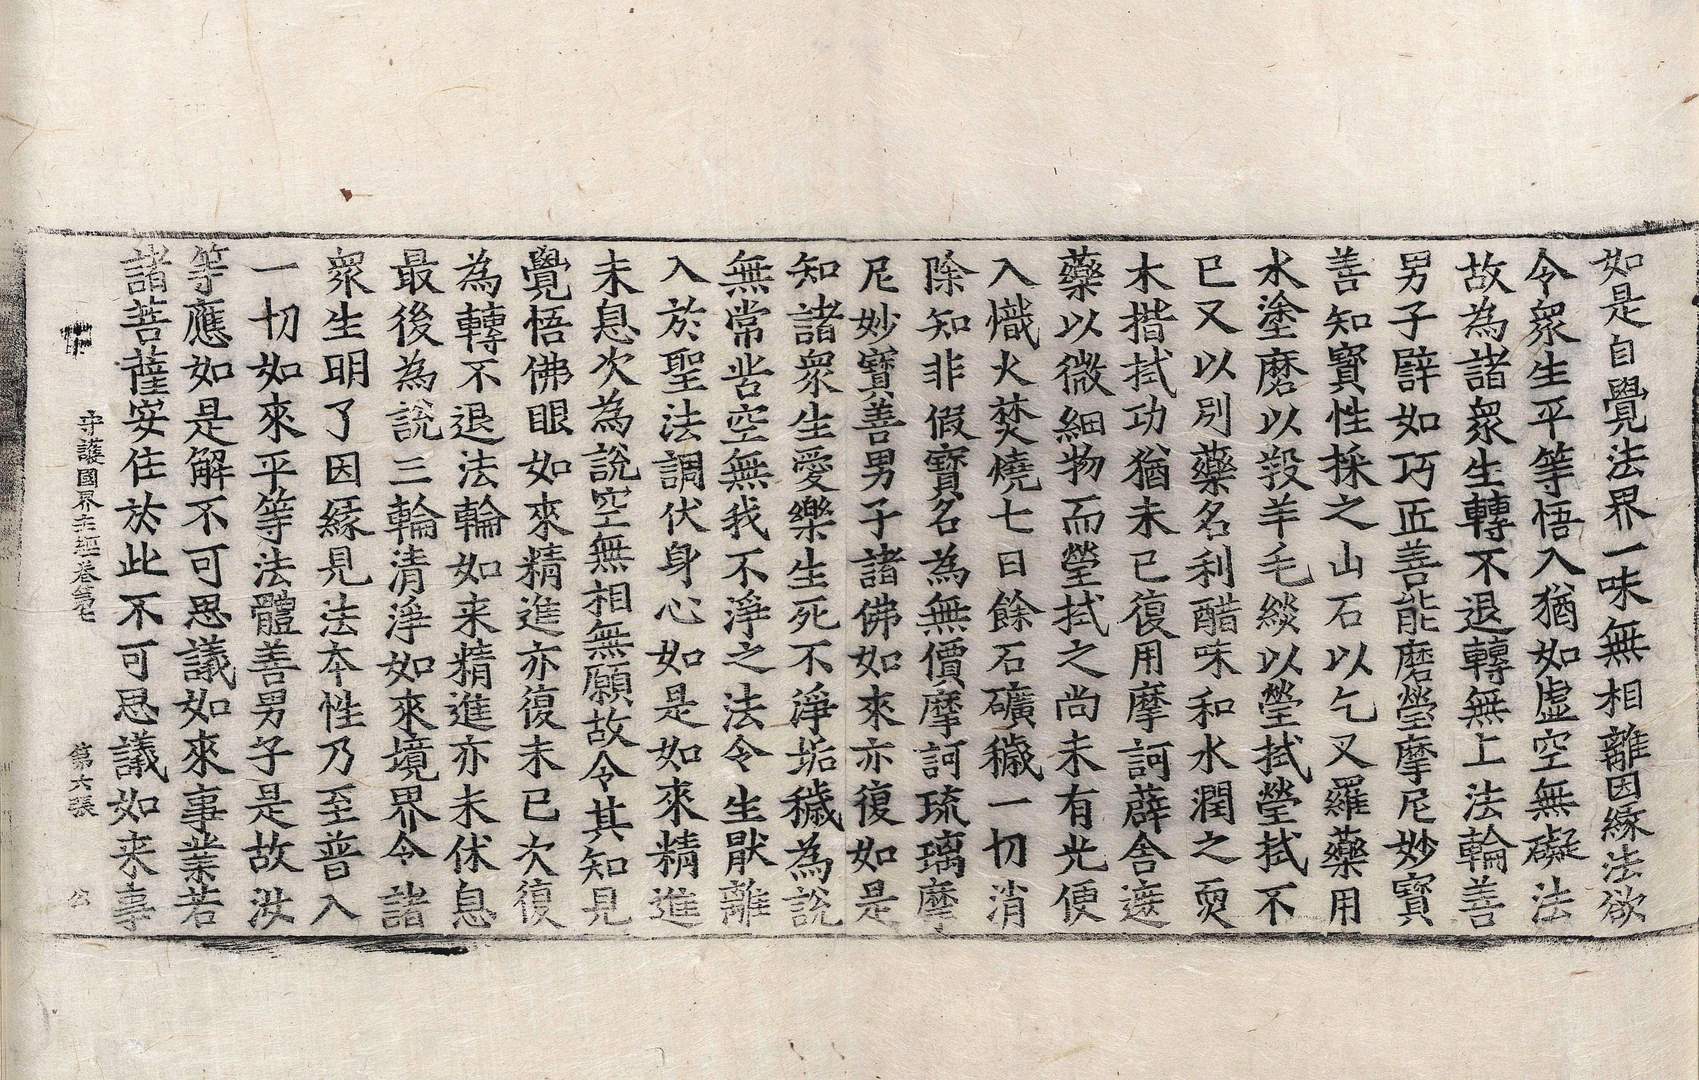 如是自覺法界一味無相離因緣法欲
令衆生平等悟入猶如虛空無礙法
故為諸衆生轉不退轉無上法輪善
男子譬如巧匠善能磨瑩摩尼妙寶
善知寶性採之山石以乞叉羅藥用
水塗磨以羖羊毛緂以瑩拭瑩拭不
已又以別藥名利醋味和水潤之耎
木揩拭功猶未已復用摩訶薜舍遮
藥以微細物而瑩拭之尚未有光便
入熾火焚燒七日餘石礦穢一切消
除知非假寶名為無價摩訶琉璃摩
尼妙寶善男子諸佛如來亦復如是
知諸衆生愛樂生死不淨垢穢為說
無常苦空無我不淨之法令生厭離
入於聖法調伏身心如是如來精進
未息次為說空無相無願故令其知見
覺悟佛眼如來精進亦復未已次復
為轉不退法輪如来精進亦未休息
最後為說三輪清淨如來境界令諸
衆生明了因緣見法本性乃至普入
一切如來平等法體善男子是故汝
等應如是解不可思議如來事業若
諸菩薩安住於此不可思議如来事
守護國界主經卷第七 第六張 公